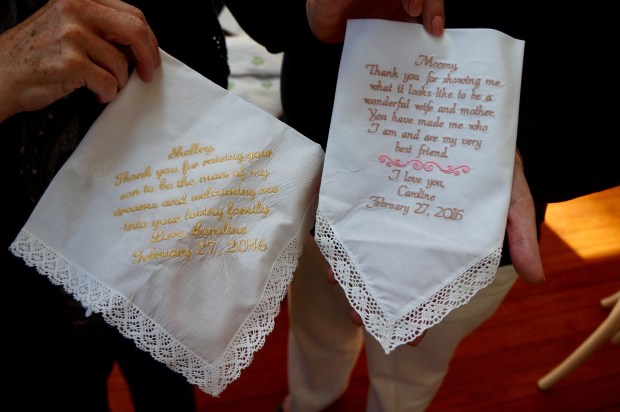 Shelley,
Thank you for raising your
son to be the man of my
dreams and welcoming me
into your loving family.
Love, Caroline
February 27, 2016
Moomy,
Thank you for showing me
what it looks like to be a
wonderful wife and mother.
You have made me who
I am and are my very
best friend.
I love you,
Caroline
February 27, 2016